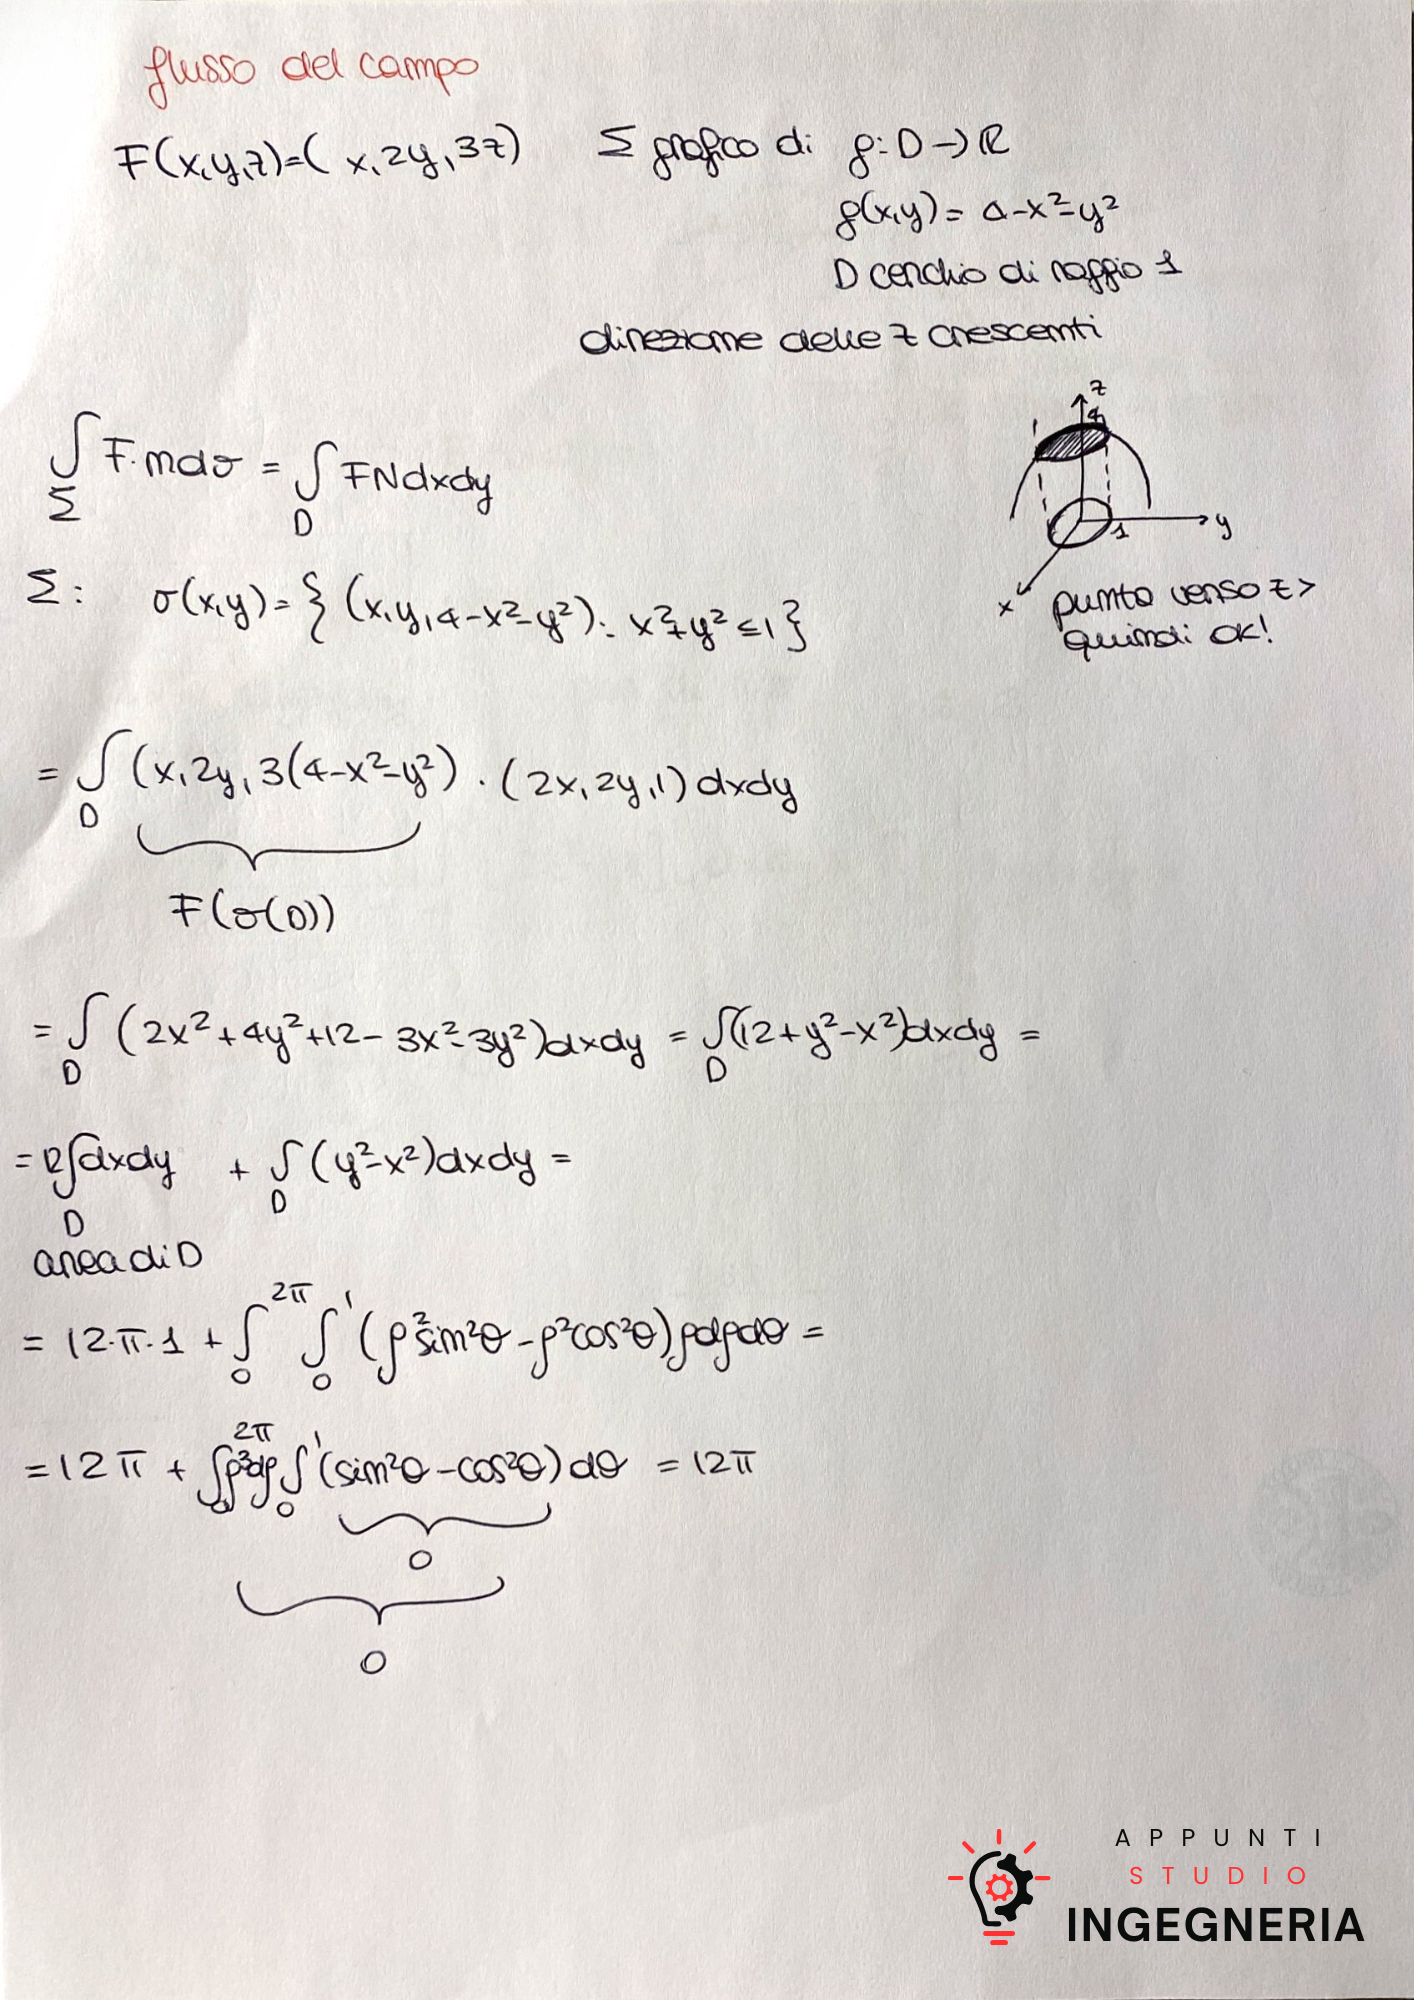 flusso del campo
F(x,y,z)=( x,2y,3z) Σ grafico di g:D→ℝ
g(x,y)= 4-x²-y²
D cerchio di raggio 1
direzione delle z crescenti
∫_Σ F·n dσ = ∫_D F N dxdy
z
4
y
1
x
punta verso z>
quindi ok!
Σ: σ(x,y)={ (x,y,4-x²-y²): x²+y²≤1}
= ∫_D (x,2y,3(4-x²-y²) · (2x,2y,1) dxdy
F(σ(D))
= ∫_D (2x²+4y²+12-3x²-3y²)dxdy = ∫_D (12+y²-x²)dxdy =
= 12∫_D dxdy + ∫_D (y²-x²)dxdy =
area di D
= 12·π·1 + ∫_0^2π ∫_0^1 (ρ²sin²θ-ρ²cos²θ)ρdρdθ =
= 12π + ∫_0^2π ρ³dρ ∫_0^1 (sin²θ-cos²θ)dθ = 12π
0
0
APPUNTI
STUDIO
INGEGNERIA